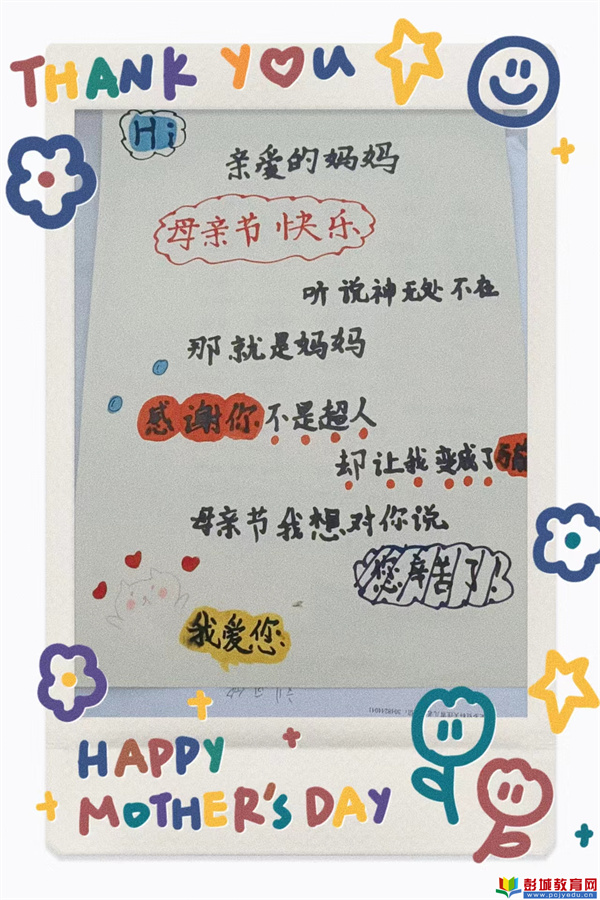 THANK YOU
Hi
亲爱的妈妈
母亲节快乐
听说神无处不在
那就是妈妈
感谢你不是超人
却让我变成了万能
母亲节我想对你说
您辛苦了！
我爱您
HAPPY
MOTHER'S DAY
彭城教育网
www.pcjyedu.cn